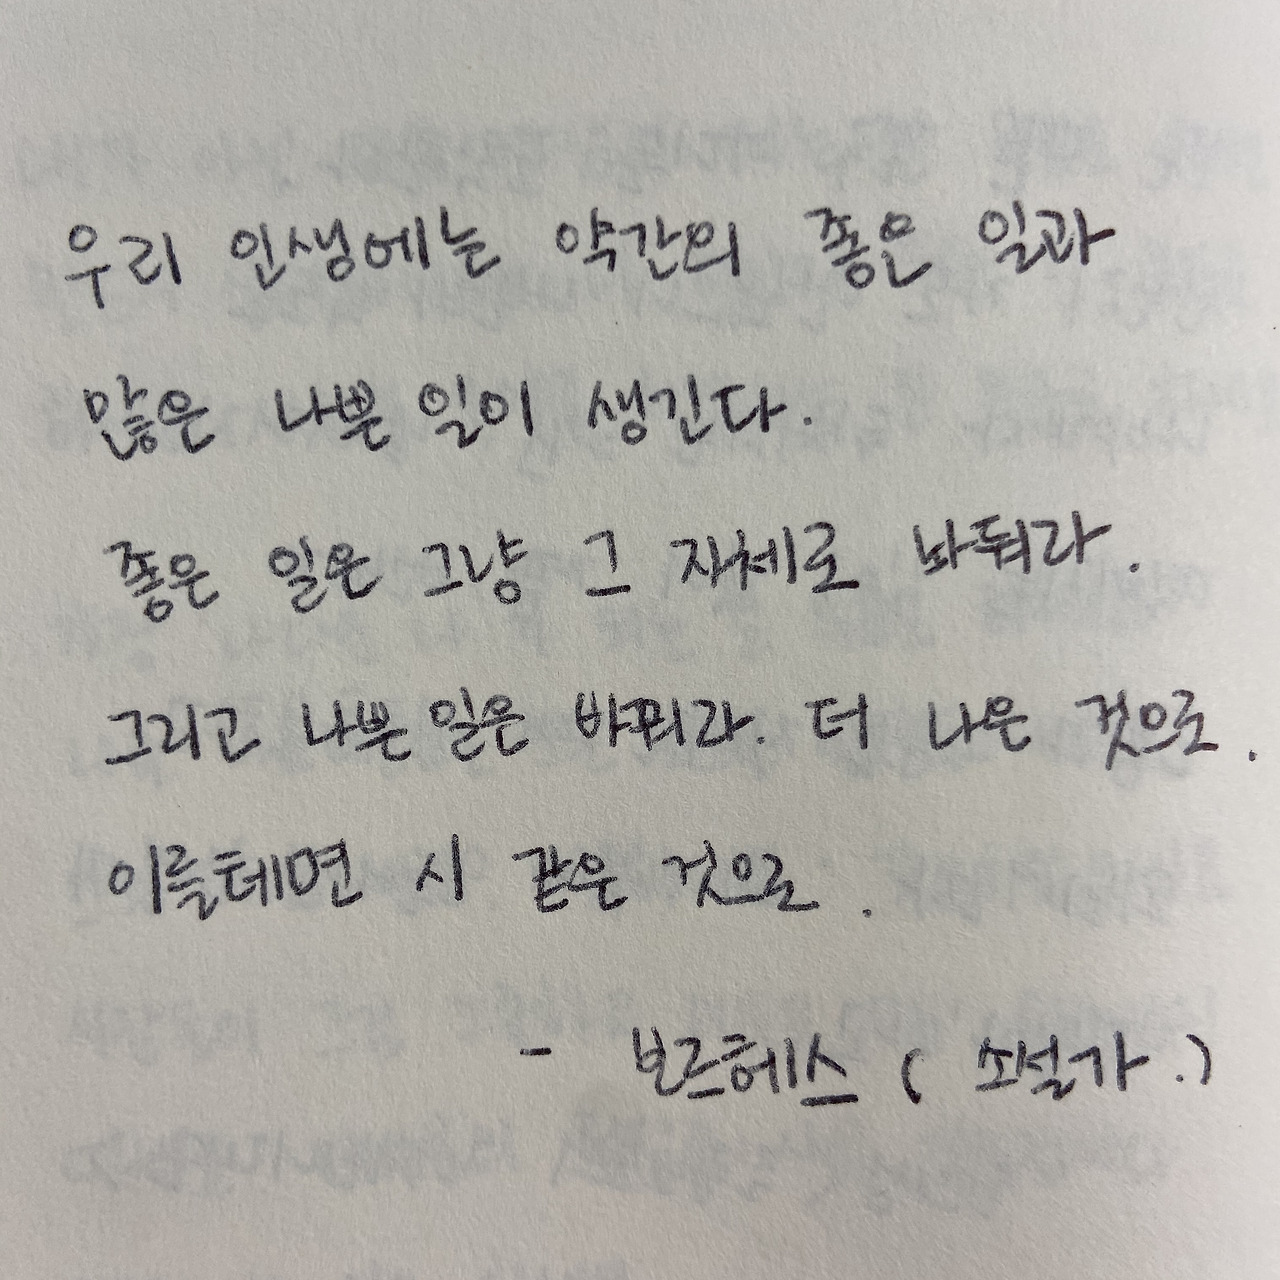 우리 인생에는 약간의 좋은 일과
많은 나쁜 일이 생긴다.
좋은 일은 그냥 그 자체로 놔둬라.
그리고 나쁜 일은 바꿔라. 더 나은 것으로.
이를테면 시 같은 것으로.
- 보르헤스 ( 소설가.)